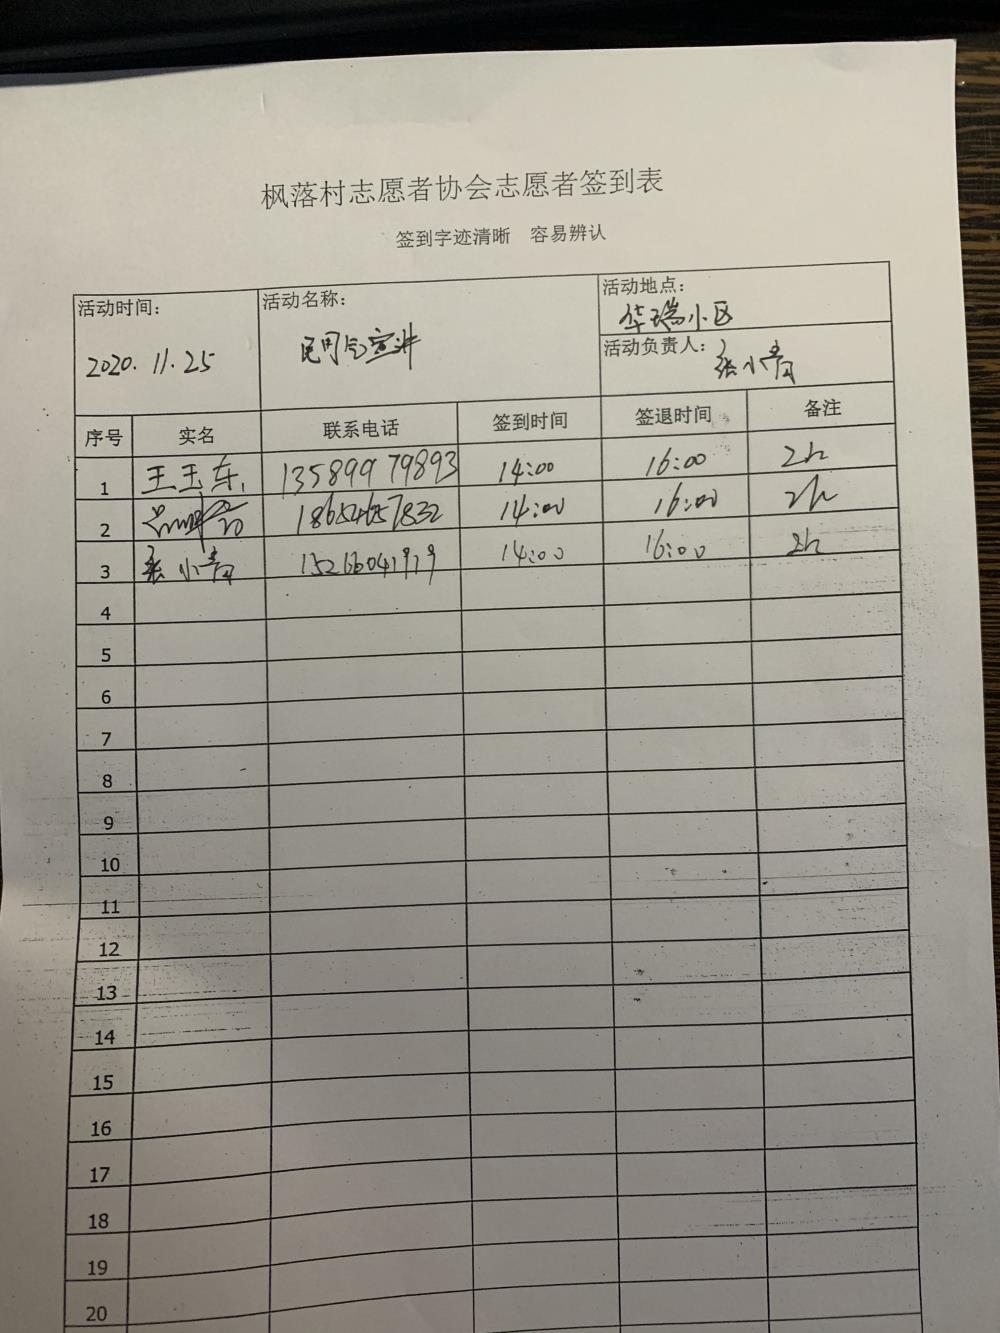 枫落村志愿者协会志愿者签到表
签到字迹清晰 容易辨认
活动时间：
2020.11.25
活动名称：
宣讲
活动地点：
华瑞小区
活动负责人：
张小青
序号 实名 联系电话 签到时间 签退时间 备注
1 王玉东 13589979893 14:00 16:00 2h
2 18654657832 14:00 16:00 2h
3 张小青 15266041919 14:00 16:00 2h
4
5
6
7
8
9
10
11
12
13
14
15
16
17
18
19
20